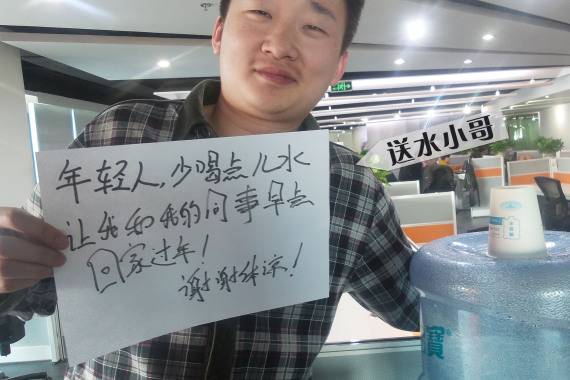 年轻人，少喝点儿水
让我和我的同事早点
回家过年！
谢谢体谅！
送水小哥
寶